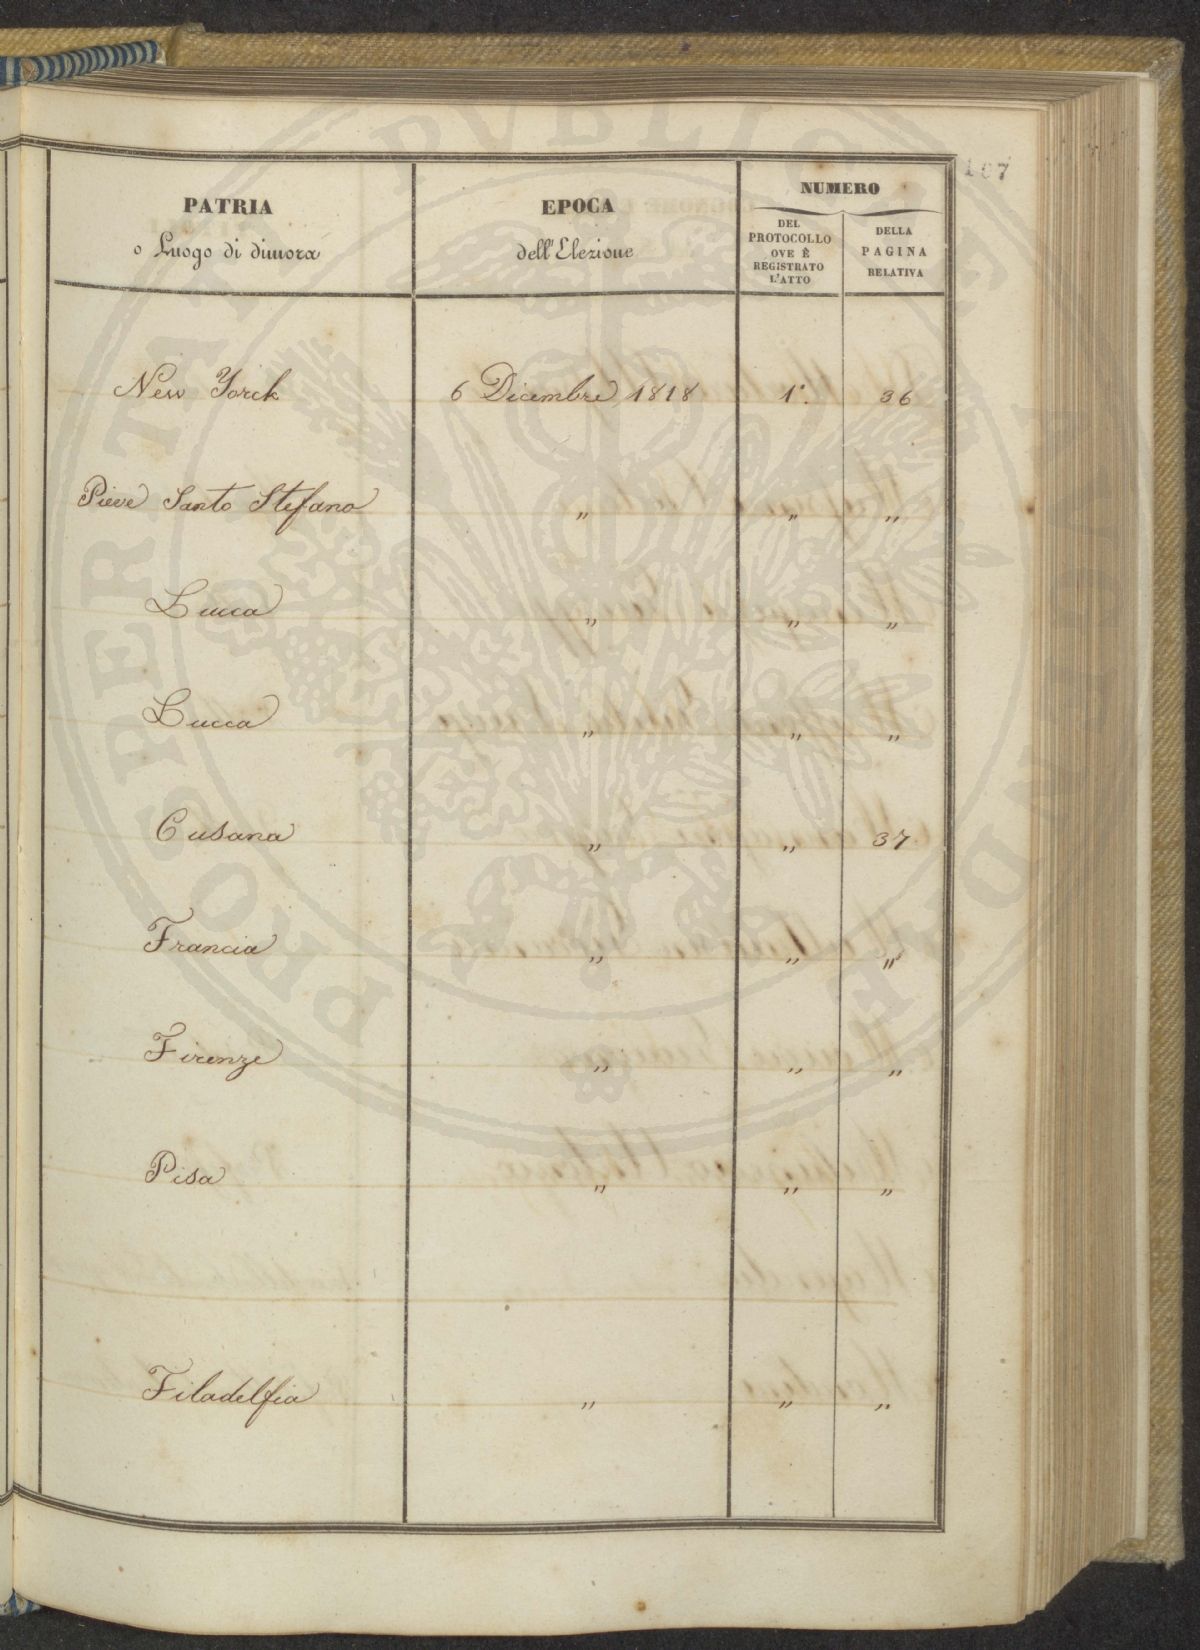 107
PATRIA
o Luogo di dimora
EPOCA
dell'Elezione
NUMERO
DEL
PROTOCOLLO
OVE È
REGISTRATO
L'ATTO
DELLA
PAGINA
RELATIVA
New Yorck 6 Dicembre 1818 1°. 36
Pieve Santo Stefano " " "
Lucca " " "
Lucca " " "
Cusana " " 37
Francia " " "
Firenze " " "
Pisa " " "
Filadelfia " " "
PROSPERITATI PUBLICAE AUGENDAE